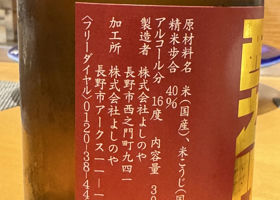 原材料名 米(国産)、米こうじ(国
精米歩合 40%
アルコール分 16度 内容量 30
製造者 株式会社よしのや
長野市西之門町九四一
加工所 株式会社よしのや
長野市アークス一一−一
〈フリーダイヤル〉0120-38-44